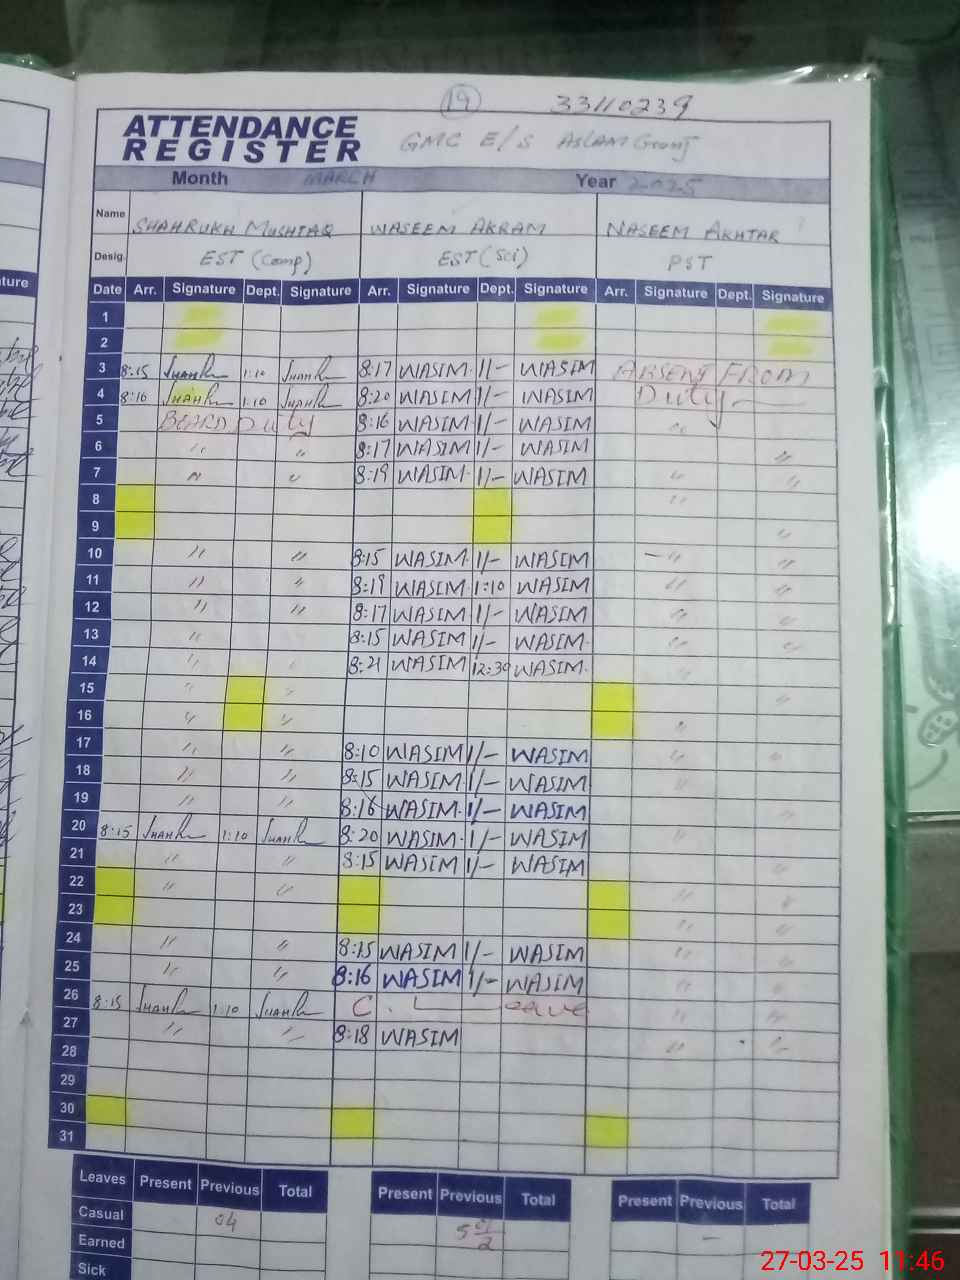 19 33110239
ATTENDANCE
REGISTER
GMC E/S ASLAM Gronj
Month MARCH Year 2025
Name SHAHRUKH MUSHTAQ WASEEM AKRAM NASEEM AKHTAR
Desig. EST (Comp) EST (Sci) PST
Date Arr. Signature Dept. Signature Arr. Signature Dept. Signature Arr. Signature Dept. Signature
1
2
3 8:15 1:10 8:17 WASIM 1/- WASIM ABSENT FROM
4 8:16 1:10 8:20 WASIM 1/- WASIM Duty
5 BOARD Duty 8:16 WASIM 1/- WASIM "
6 " " 8:17 WASIM 1/- WASIM "
7 " " 8:19 WASIM 1/- WASIM " "
8 "
9 "
10 " " 8:15 WASIM 1/- WASIM " "
11 " " 8:19 WASIM 1:10 WASIM " "
12 " " 8:17 WASIM 1/- WASIM " "
13 " " 8:15 WASIM 1/- WASIM " "
14 " " 8:21 WASIM 12:30 WASIM " "
15 " " "
16 " " "
17 " " 8:10 WASIM 1/- WASIM " "
18 " " 8:15 WASIM 1/- WASIM "
19 " " 8:16 WASIM 1/- WASIM " "
20 8:15 1:10 8:20 WASIM 1/- WASIM " "
21 " " 8:15 WASIM 1/- WASIM " "
22 " " " "
23 " "
24 " " 8:15 WASIM 1/- WASIM " "
25 " " 8:16 WASIM 1/- WASIM " "
26 8:15 1:10 C. Leave " "
27 " " 8:18 WASIM " "
28
29
30
31
Leaves Present Previous Total Present Previous Total Present Previous Total
Casual 04 5 -
Earned
Sick
27-03-25 11:46